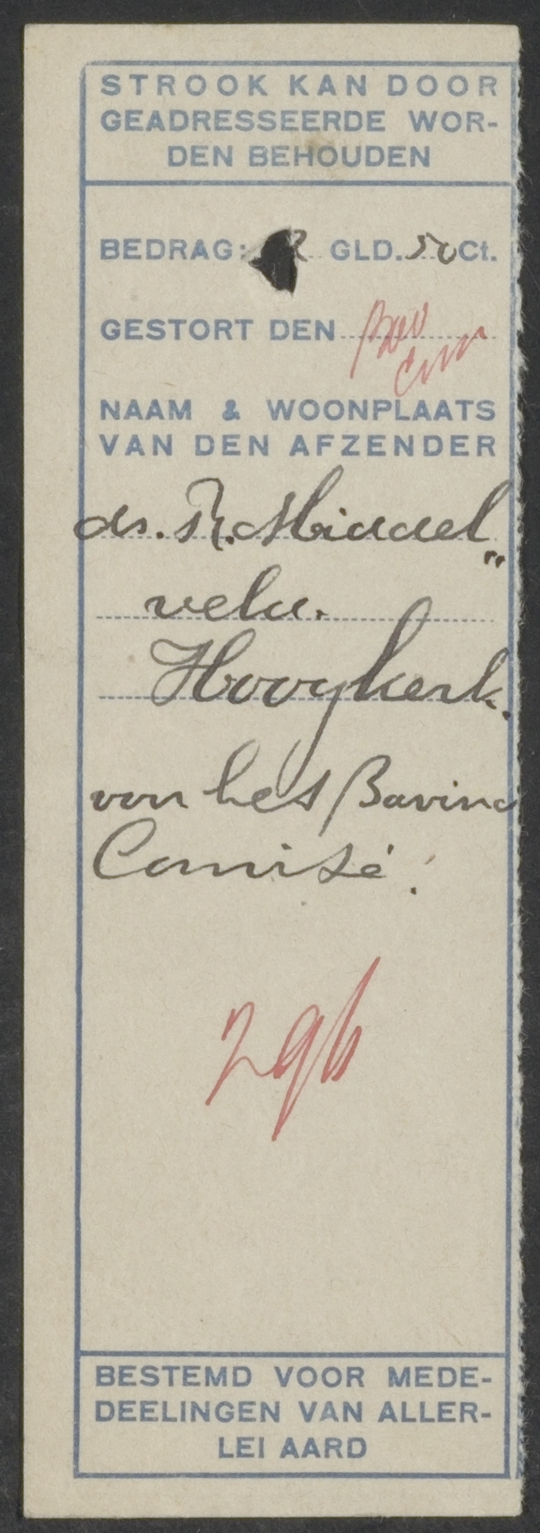 STROOK KAN DOOR
GEADRESSEERDE WOR-
DEN BEHOUDEN
BEDRAG: 2 GLD. 50 Ct.
GESTORT DEN
NAAM & WOONPLAATS
VAN DEN AFZENDER
ds. R. Middel"
veld.
Hoogkerk.
von het Bavinc
Comité.
296
BESTEMD VOOR MEDE-
DEELINGEN VAN ALLER-
LEI AARD